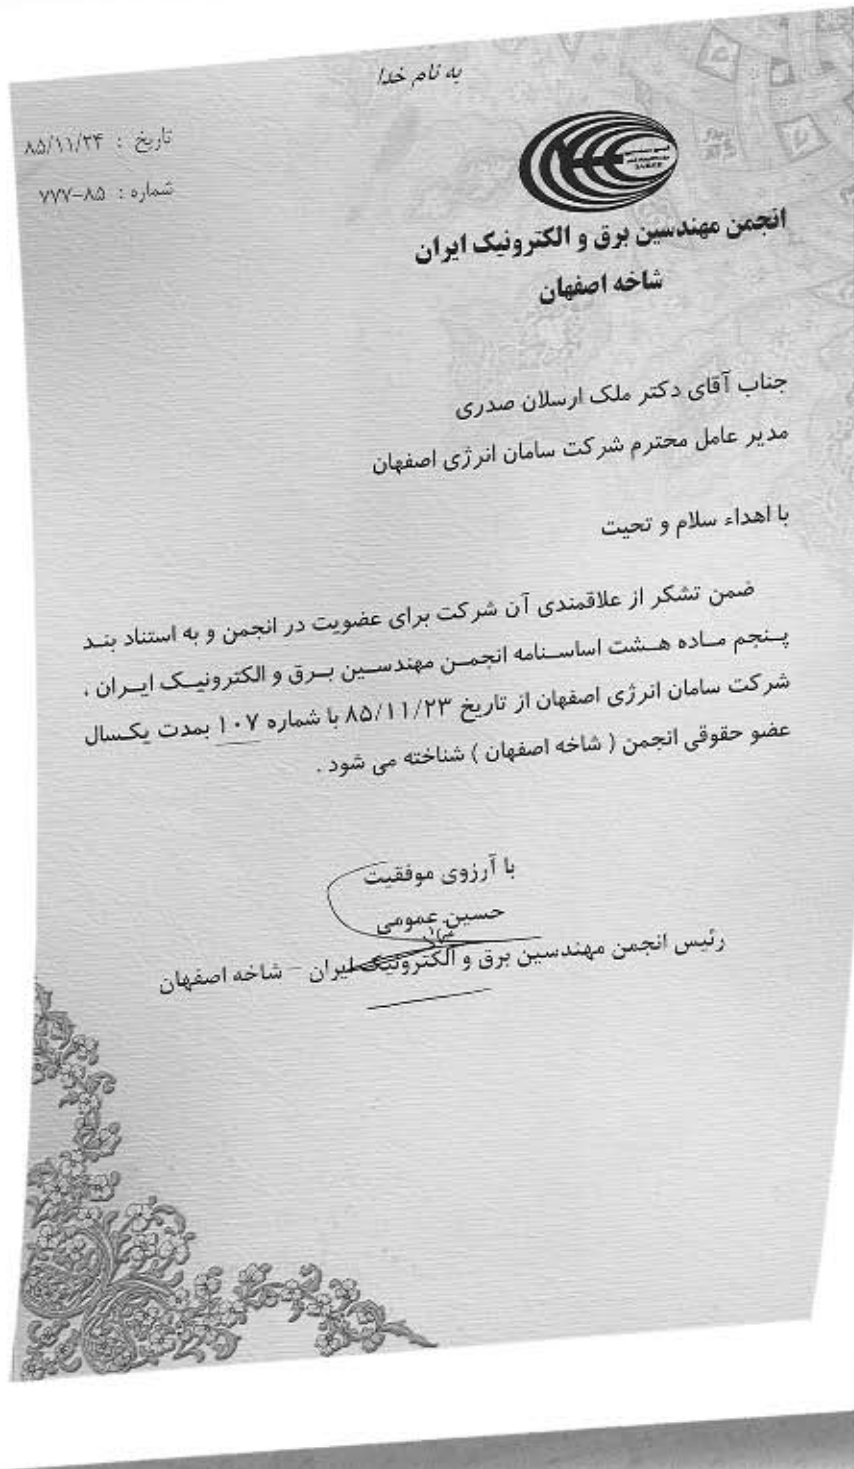 به نام خدا
تاریخ : ۸۵/۱۱/۲۴
شماره : ۸۵-۷۷۷
انجمن مهندسین برق و الکترونیک ایران
شاخه اصفهان
جناب آقای دکتر ملک ارسلان صدری
مدیر عامل محترم شرکت سامان انرژی اصفهان
با اهداء سلام و تحیت
ضمن تشکر از علاقمندی آن شرکت برای عضویت در انجمن و به استناد بند
پنجم ماده هشت اساسنامه انجمن مهندسین برق و الکترونیک ایران ،
شرکت سامان انرژی اصفهان از تاریخ ۸۵/۱۱/۲۳ با شماره ۱۰۷ بمدت یکسال
عضو حقوقی انجمن ( شاخه اصفهان ) شناخته می شود .
با آرزوی موفقیت
حسین عمومی
رئیس انجمن مهندسین برق و الکترونیک ایران – شاخه اصفهان